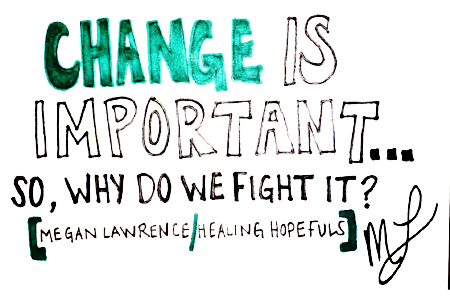 CHANGE IS
IMPORTANT...
SO, WHY DO WE FIGHT IT?
[MEGAN LAWRENCE/HEALING HOPEFULS]
ML